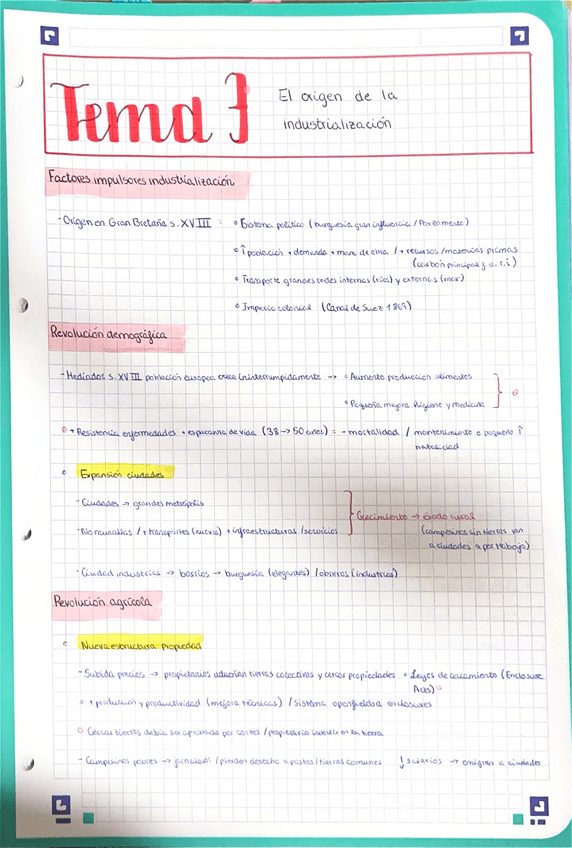 Tema 3
El origen de la
industrialización
Factores impulsores industrialización
- Origen en Gran Bretaña s. XVIII : ° Sistema político (burguesía gran influencia / Parlamento)
° ↑ población + demanda + mano de obra / + recursos/materias primas
(carbón principal
° Transporte grandes redes internas (ríos) y externas (mar)
° Imperio colonial (Canal de Suez 1869)
Revolución demográfica
- Mediados s. XVIII población europea crece ininterrumpidamente → ° Aumento producción alimentos
° Pequeña mejora higiene y medicina
+ Resistencia enfermedades + esperanza de vida (38 → 50 años) = - mortalidad / mantenimiento o pequeño ↑
natalidad
° Expansión ciudades
- Ciudades → grandes metrópolis
- No murallas / + transportes (nuevo) + infraestructuras / servicios
Crecimiento → éxodo rural
(campesinos sin tierras van
a ciudades a por trabajo)
- Ciudad industrias → barrios → burguesía (elegantes) / obreros (industrias)
Revolución agrícola
° Nueva estructura propiedad
- Subida precios → propietarios adueñan tierras colectivas y cercar propiedades = Leyes de cercamiento (Enclosure
Acts)
= + producción y productividad (mejora técnicas) / sistema openfield a enclosures
° Cercar tierras debía ser aprobado por cortes / propietario en tierra
- Campesinos pobres → / pierden derecho a pastos / tierras comunes → emigran a ciudades